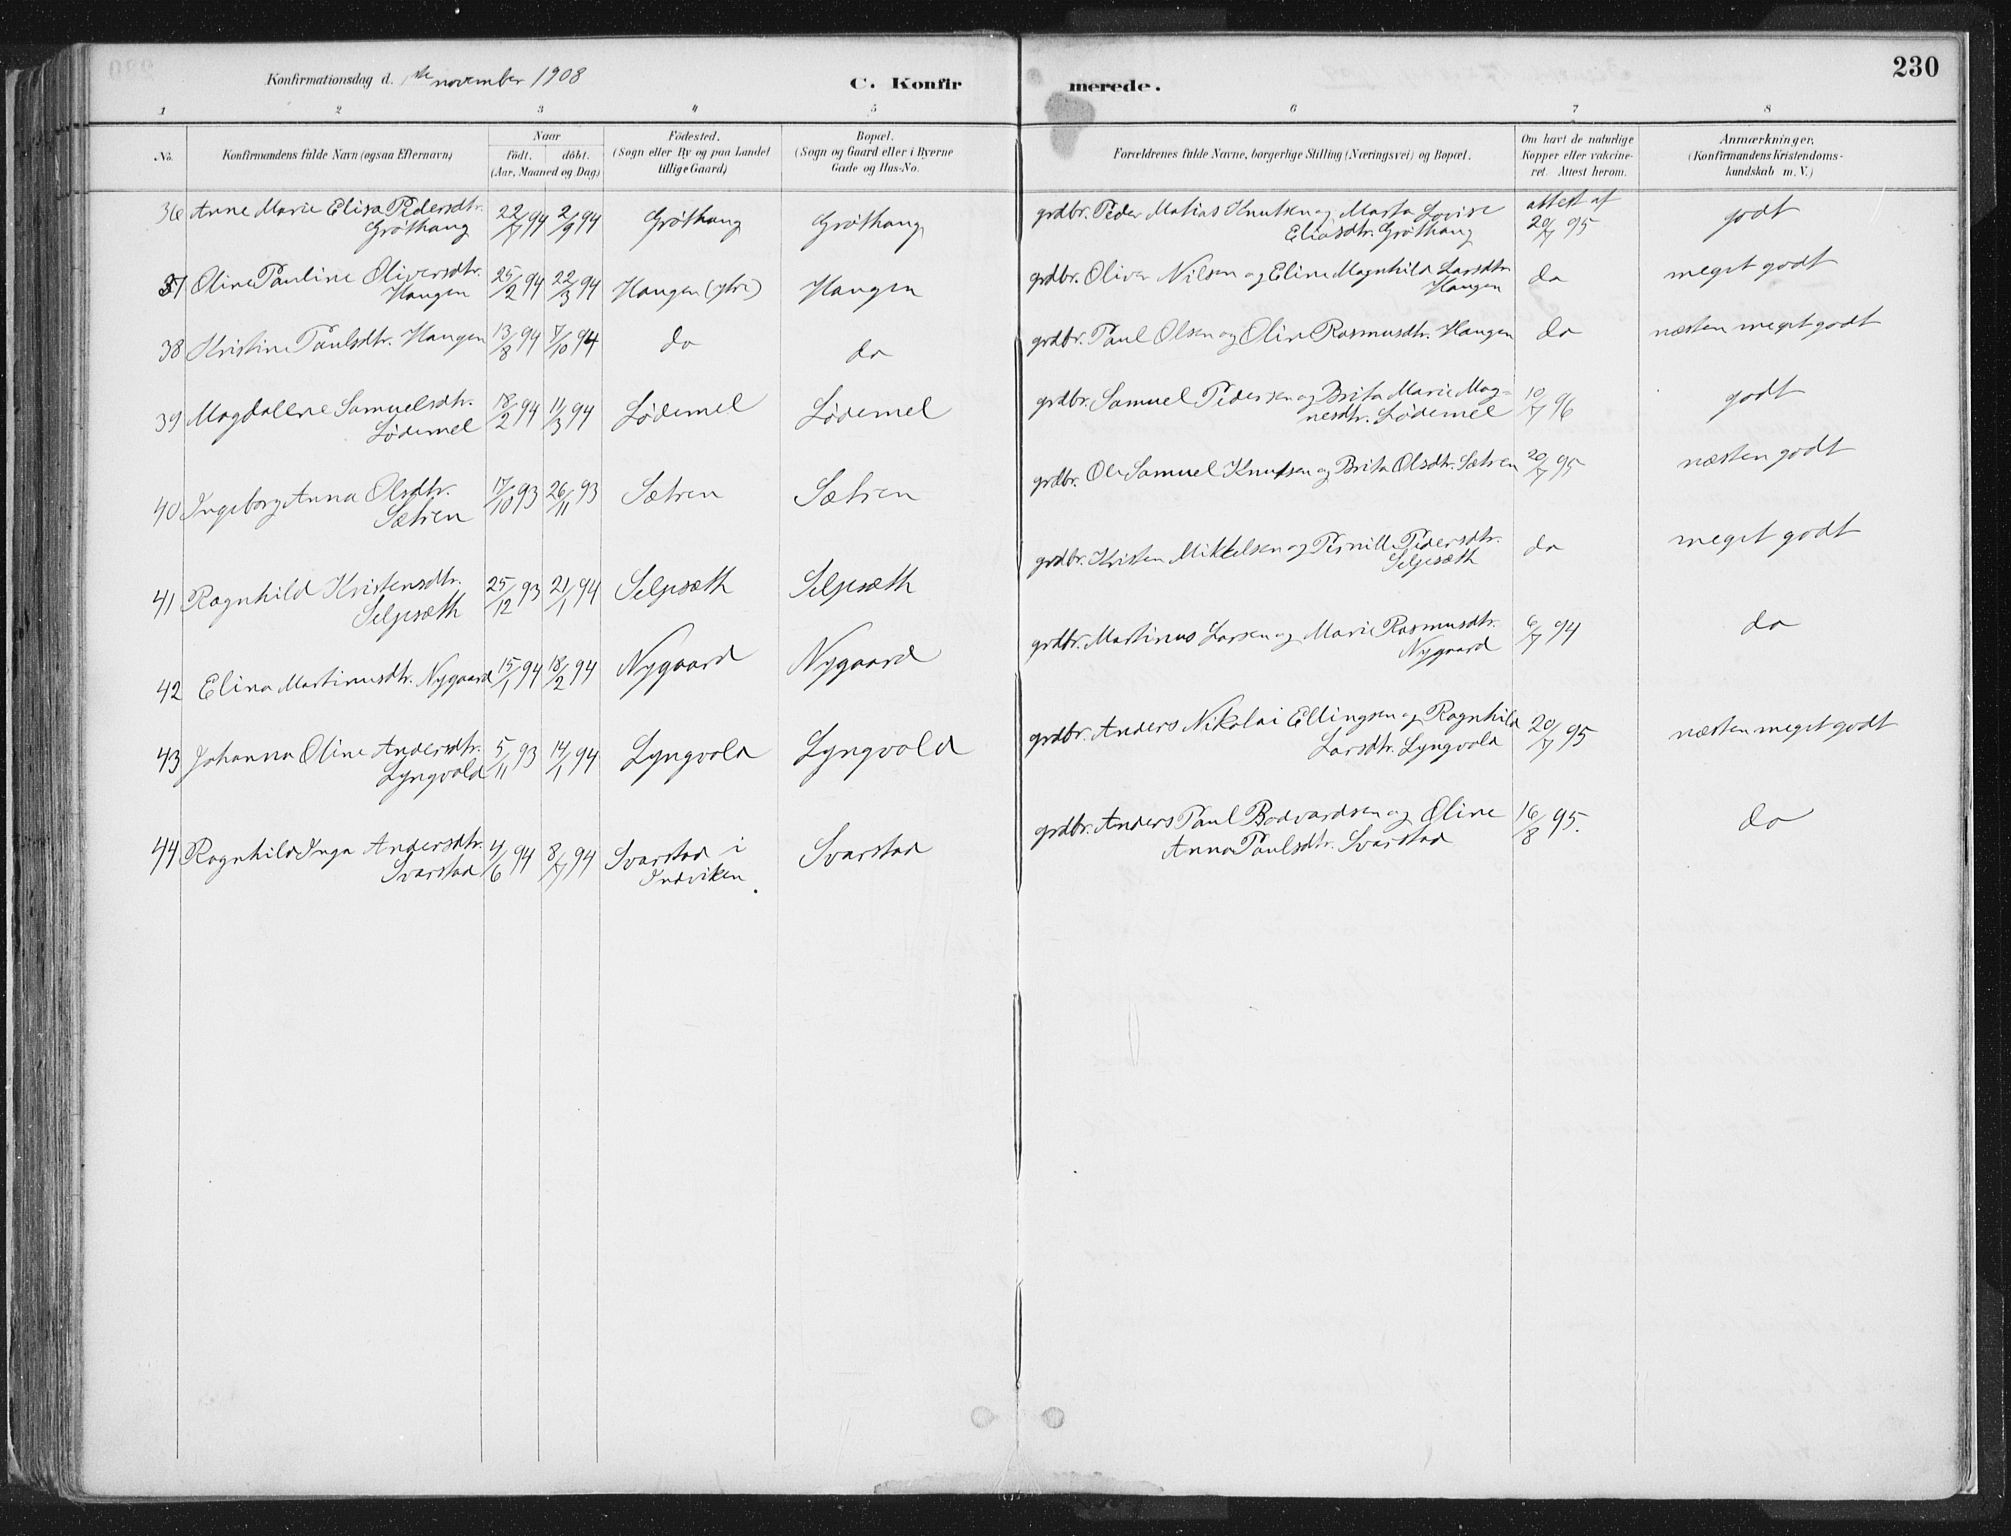 230
Konfirmationsdag d. 1ste november 1908
C. Konfir merede.
1 2 3 4 5 6 7 8
No.
Konfirmandens fulde Navn (ogsaa Efternavn)
Naar
födt. döbt.
(Aar, Maaned og Dag)
Födested.
(Sogn eller By og paa Landet
tillige Gaard)
Bopæl.
(Sogn og Gaard eller i Byerne
Gade og Hus-No.
Forældrenes fulde Navne, borgerlige Stilling (Næringsvei) og Bopæl.
Om havt de naturlige
Kopper eller vakcine-
ret. Attest herom.
Anmærkninger.
(Konfirmandens Kristendoms-
kundskab m. V.)
36 Anne Marie Elisa Pedersdtr. 22/7 94 2/9 94 Grøthaug Grøthaug grdbr. Peder Matias Knutsen og Marta Lovise attest af godt
Grøthaug Eliasdtr. Grøthaug 20/7 95
37 Oline Pauline Oliversdtr. 25/2 94 22/3 94 Haugen (ytre) Haugen grdbr. Oliver Nilsen og Eline Magnhild Larsdtr. do meget godt
Haugen Haugen
38 Kristine Paulsdtr. Haugen 13/8 94 7/10 94 do do grdbr. Paul Olsen og Oline Rasmusdtr. Haugen do næsten meget godt
39 Magdalene Samuelsdtr. 18/2 94 11/3 94 Lødemel Lødemel grdbr. Samuel Pedersen og Brita Marie Mag- 10/7 96 godt
Lødemel nesdtr. Lødemel
40 Ingeborg Anna Olsdtr. 17/10 93 26/11 93 Sætren Sætren grdbr. Ole Samuel Knutsen og Brita Olsdtr. Sætren 20/7 95 næsten godt
Sætren
41 Ragnhild Kristensdtr. 25/12 93 21/1 94 Seljesæth Seljesæth grdbr. Kristen Mikkelsen og Pernille Pedersdtr. do meget godt
Seljesæth Seljesæth
42 Elina Martinusdtr. Nygaard 15/1 94 18/2 94 Nygaard Nygaard grdbr. Martinus Larsen og Marie Rasmusdtr. 6/7 94 do
Nygaard
43 Johanna Oline Andersdtr. 5/11 93 14/1 94 Lyngvold Lyngvold grdbr. Anders Nikolai Ellingsen og Ragnhild 20/7 95 næsten meget godt
Lyngvold Larsdtr. Lyngvold
44 Ragnhild Inga Andersdtr. 4/6 94 8/7 94 Svarstad i Svarstad grdbr. Anders Paul Bodvardsen og Oline 16/8 95. do
Svarstad Indviken. Anna Paulsdtr. Svarstad